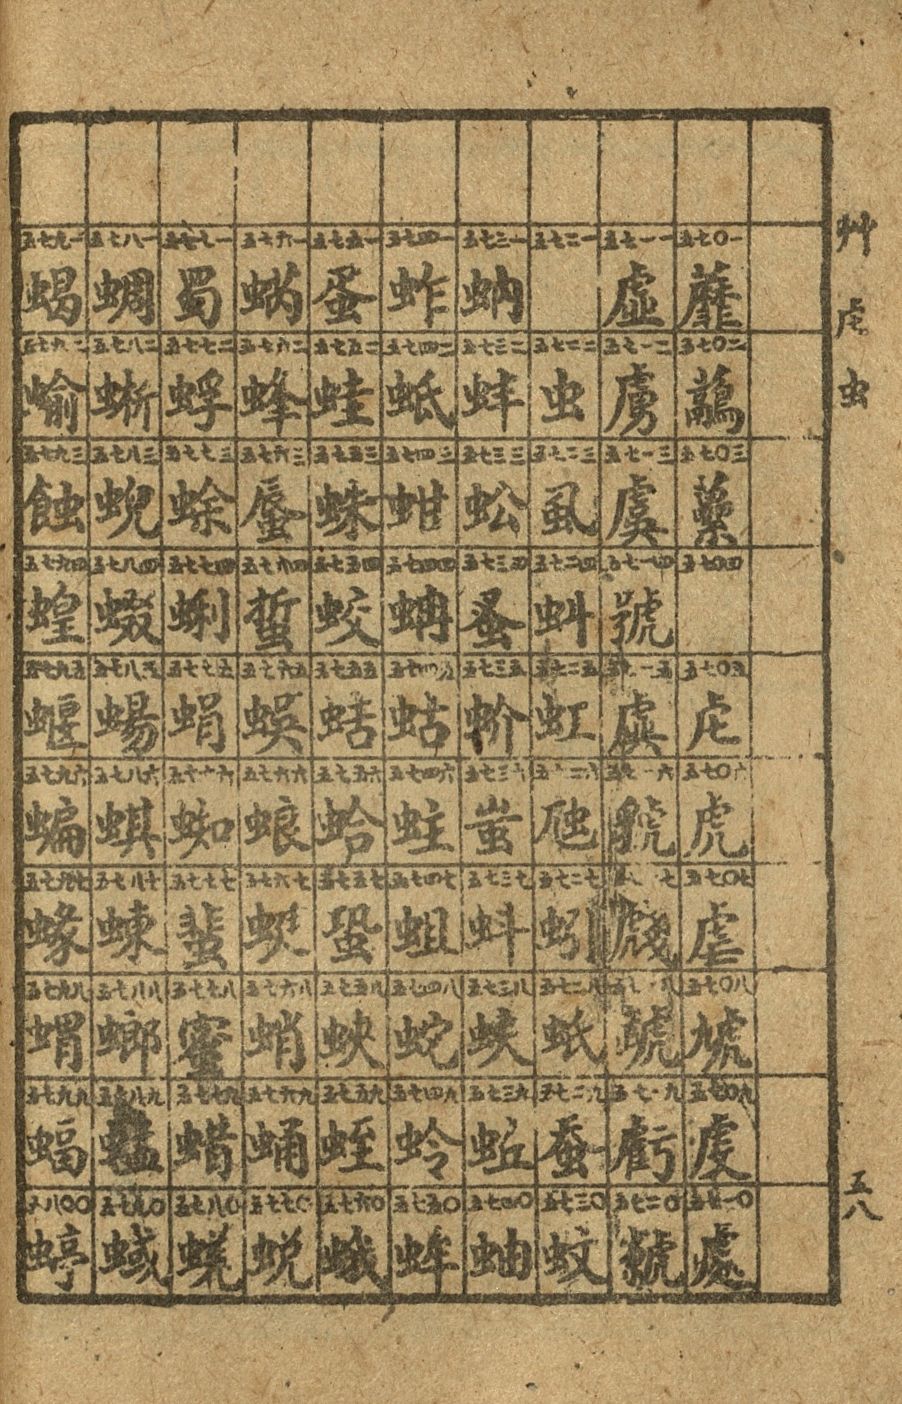 艸虍虫
五八
五七〇一 蘼 五七〇二 五七〇三 虆 五七〇四 五七〇五 虍 五七〇六 虎 五七〇七 虐 五七〇八 虓 五七〇九 虔 五七一〇 處
五七一一 虛 五七一二 虜 五七一三 虞 五七一四 號 五七一五 虡 五七一六 虢 五七一七 虥 五七一八 五七一九 虧 五七二〇
五七二一 五七二二 虫 五七二三 虱 五七二四 虯 五七二五 虹 五七二六 虺 五七二七 蚓 五七二八 蚔 五七二九 蚕 五七三〇 蚊
五七三一 蚋 五七三二 蚌 五七三三 蚣 五七三四 蚤 五七三五 蚧 五七三六 蚩 五七三七 蚪 五七三八 五七三九 蚯 五七四〇 蚰
五七四一 蚱 五七四二 蚳 五七四三 蚶 五七四四 蚺 五七四五 蛄 五七四六 蛀 五七四七 蛆 五七四八 蛇 五七四九 蛉 五七五〇 蛑
五七五一 蛋 五七五二 蛙 五七五三 蛛 五七五四 蛟 五七五五 蛞 五七五六 蛤 五七五七 蛩 五七五八 五七五九 蛭 五七六〇 蛾
五七六一 五七六二 蜂 五七六三 蜃 五七六四 蜇 五七六五 蜈 五七六六 蜋 五七六七 蜓 五七六八 蛸 五七六九 蛹 五七七〇 蛻
五七七一 蜀 五七七二 蜉 五七七三 蜍 五七七四 蜊 五七七五 蜎 五七七六 蜘 五七七七 蜚 五七七八 蜜 五七七九 蜡 五七八〇 蜣
五七八一 蜩 五七八二 蜥 五七八三 蜺 五七八四 蝃 五七八五 蜴 五七八六 蜞 五七八七 蝀 五七八八 螂 五七八九 五七九〇 蜮
五七九一 蝎 五七九二 蝓 五七九三 蝕 五七九四 蝗 五七九五 蝘 五七九六 蝙 五七九七 蝝 五七九八 蝟 五七九九 蝠 五八〇〇 蝏